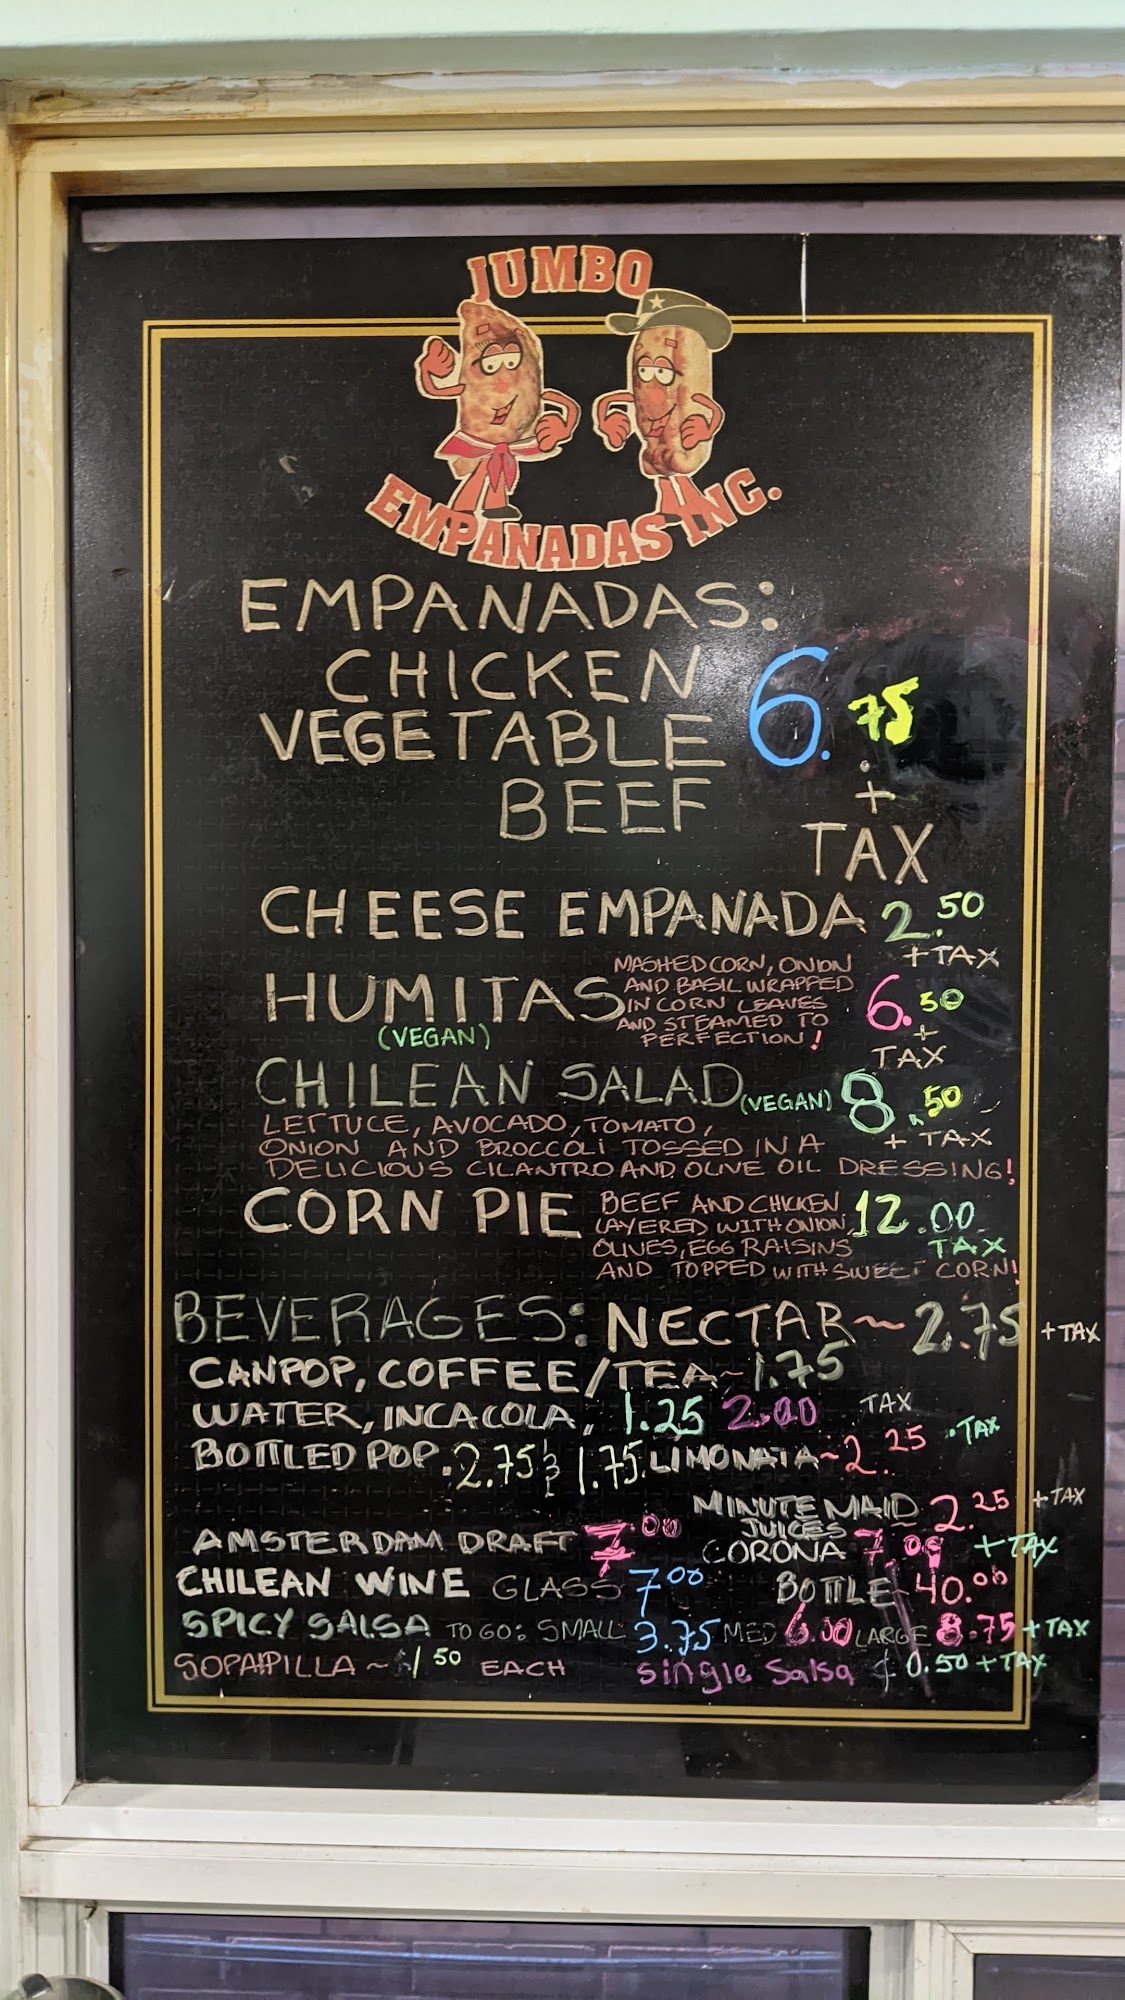 JUMBO
EMPANADAS INC.
EMPANADAS:
CHICKEN
VEGETABLE 6.75
BEEF +
TAX
CHEESE EMPANADA 2.50
+ TAX
HUMITAS MASHED CORN, ONION
AND BASIL WRAPPED
IN CORN LEAVES 6.50
AND STEAMED TO +
(VEGAN) PERFECTION! TAX
CHILEAN SALAD (VEGAN) 8.50
LETTUCE, AVOCADO, TOMATO, + TAX
ONION AND BROCCOLI TOSSED IN A
DELICIOUS CILANTRO AND OLIVE OIL DRESSING!
CORN PIE BEEF AND CHICKEN 12.00
LAYERED WITH ONION,
OLIVES, EGG RAISINS TAX
AND TOPPED WITH SWEET CORN!
BEVERAGES: NECTAR~ 2.75 + TAX
CANPOP, COFFEE/TEA~ 1.75
WATER, INCACOLA, 1.25 2.00 TAX
BOTTLED POP. 2.75 & 1.75. LIMONATA~ 2.25 .TAX
MINUTE MAID 2.25 + TAX
JUICES
AMSTERDAM DRAFT 7.00 CORONA 7.00 + TAX
CHILEAN WINE GLASS 7.00 BOTTLE~ 40.00
SPICY SALSA TO GO: SMALL 3.75 MED 6.00 LARGE 8.75 + TAX
SOPAIPILLA ~ $1.50 EACH single Salsa $0.50 + TAX